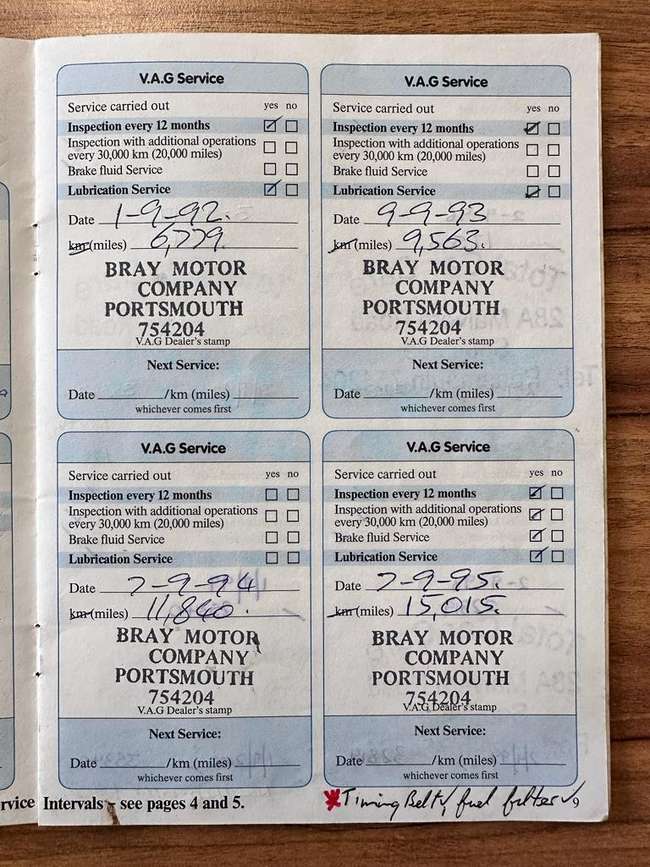 V.A.G Service
Service carried out yes no
Inspection every 12 months
Inspection with additional operations
every 30,000 km (20,000 miles)
Brake fluid Service
Lubrication Service
Date 1-9-92.
km (miles) 6,779.
BRAY MOTOR
COMPANY
PORTSMOUTH
754204
V.A.G Dealer's stamp
Next Service:
Date /km (miles)
whichever comes first
V.A.G Service
Service carried out yes no
Inspection every 12 months
Inspection with additional operations
every 30,000 km (20,000 miles)
Brake fluid Service
Lubrication Service
Date 9-9-93
km (miles) 9,563.
BRAY MOTOR
COMPANY
PORTSMOUTH
754204
V.A.G Dealer's stamp
Next Service:
Date /km (miles)
whichever comes first
V.A.G Service
Service carried out yes no
Inspection every 12 months
Inspection with additional operations
every 30,000 km (20,000 miles)
Brake fluid Service
Lubrication Service
Date 7-9-94
km (miles) 11,840.
BRAY MOTOR
COMPANY
PORTSMOUTH
754204
V.A.G Dealer's stamp
Next Service:
Date /km (miles)
whichever comes first
V.A.G Service
Service carried out yes no
Inspection every 12 months
Inspection with additional operations
every 30,000 km (20,000 miles)
Brake fluid Service
Lubrication Service
Date 7-9-95.
km (miles) 15,015.
BRAY MOTOR
COMPANY
PORTSMOUTH
754204
V.A.G Dealer's stamp
Next Service:
Date /km (miles)
whichever comes first
rvice Intervals - see pages 4 and 5.
Timing Belt ✓, fuel filter ✓